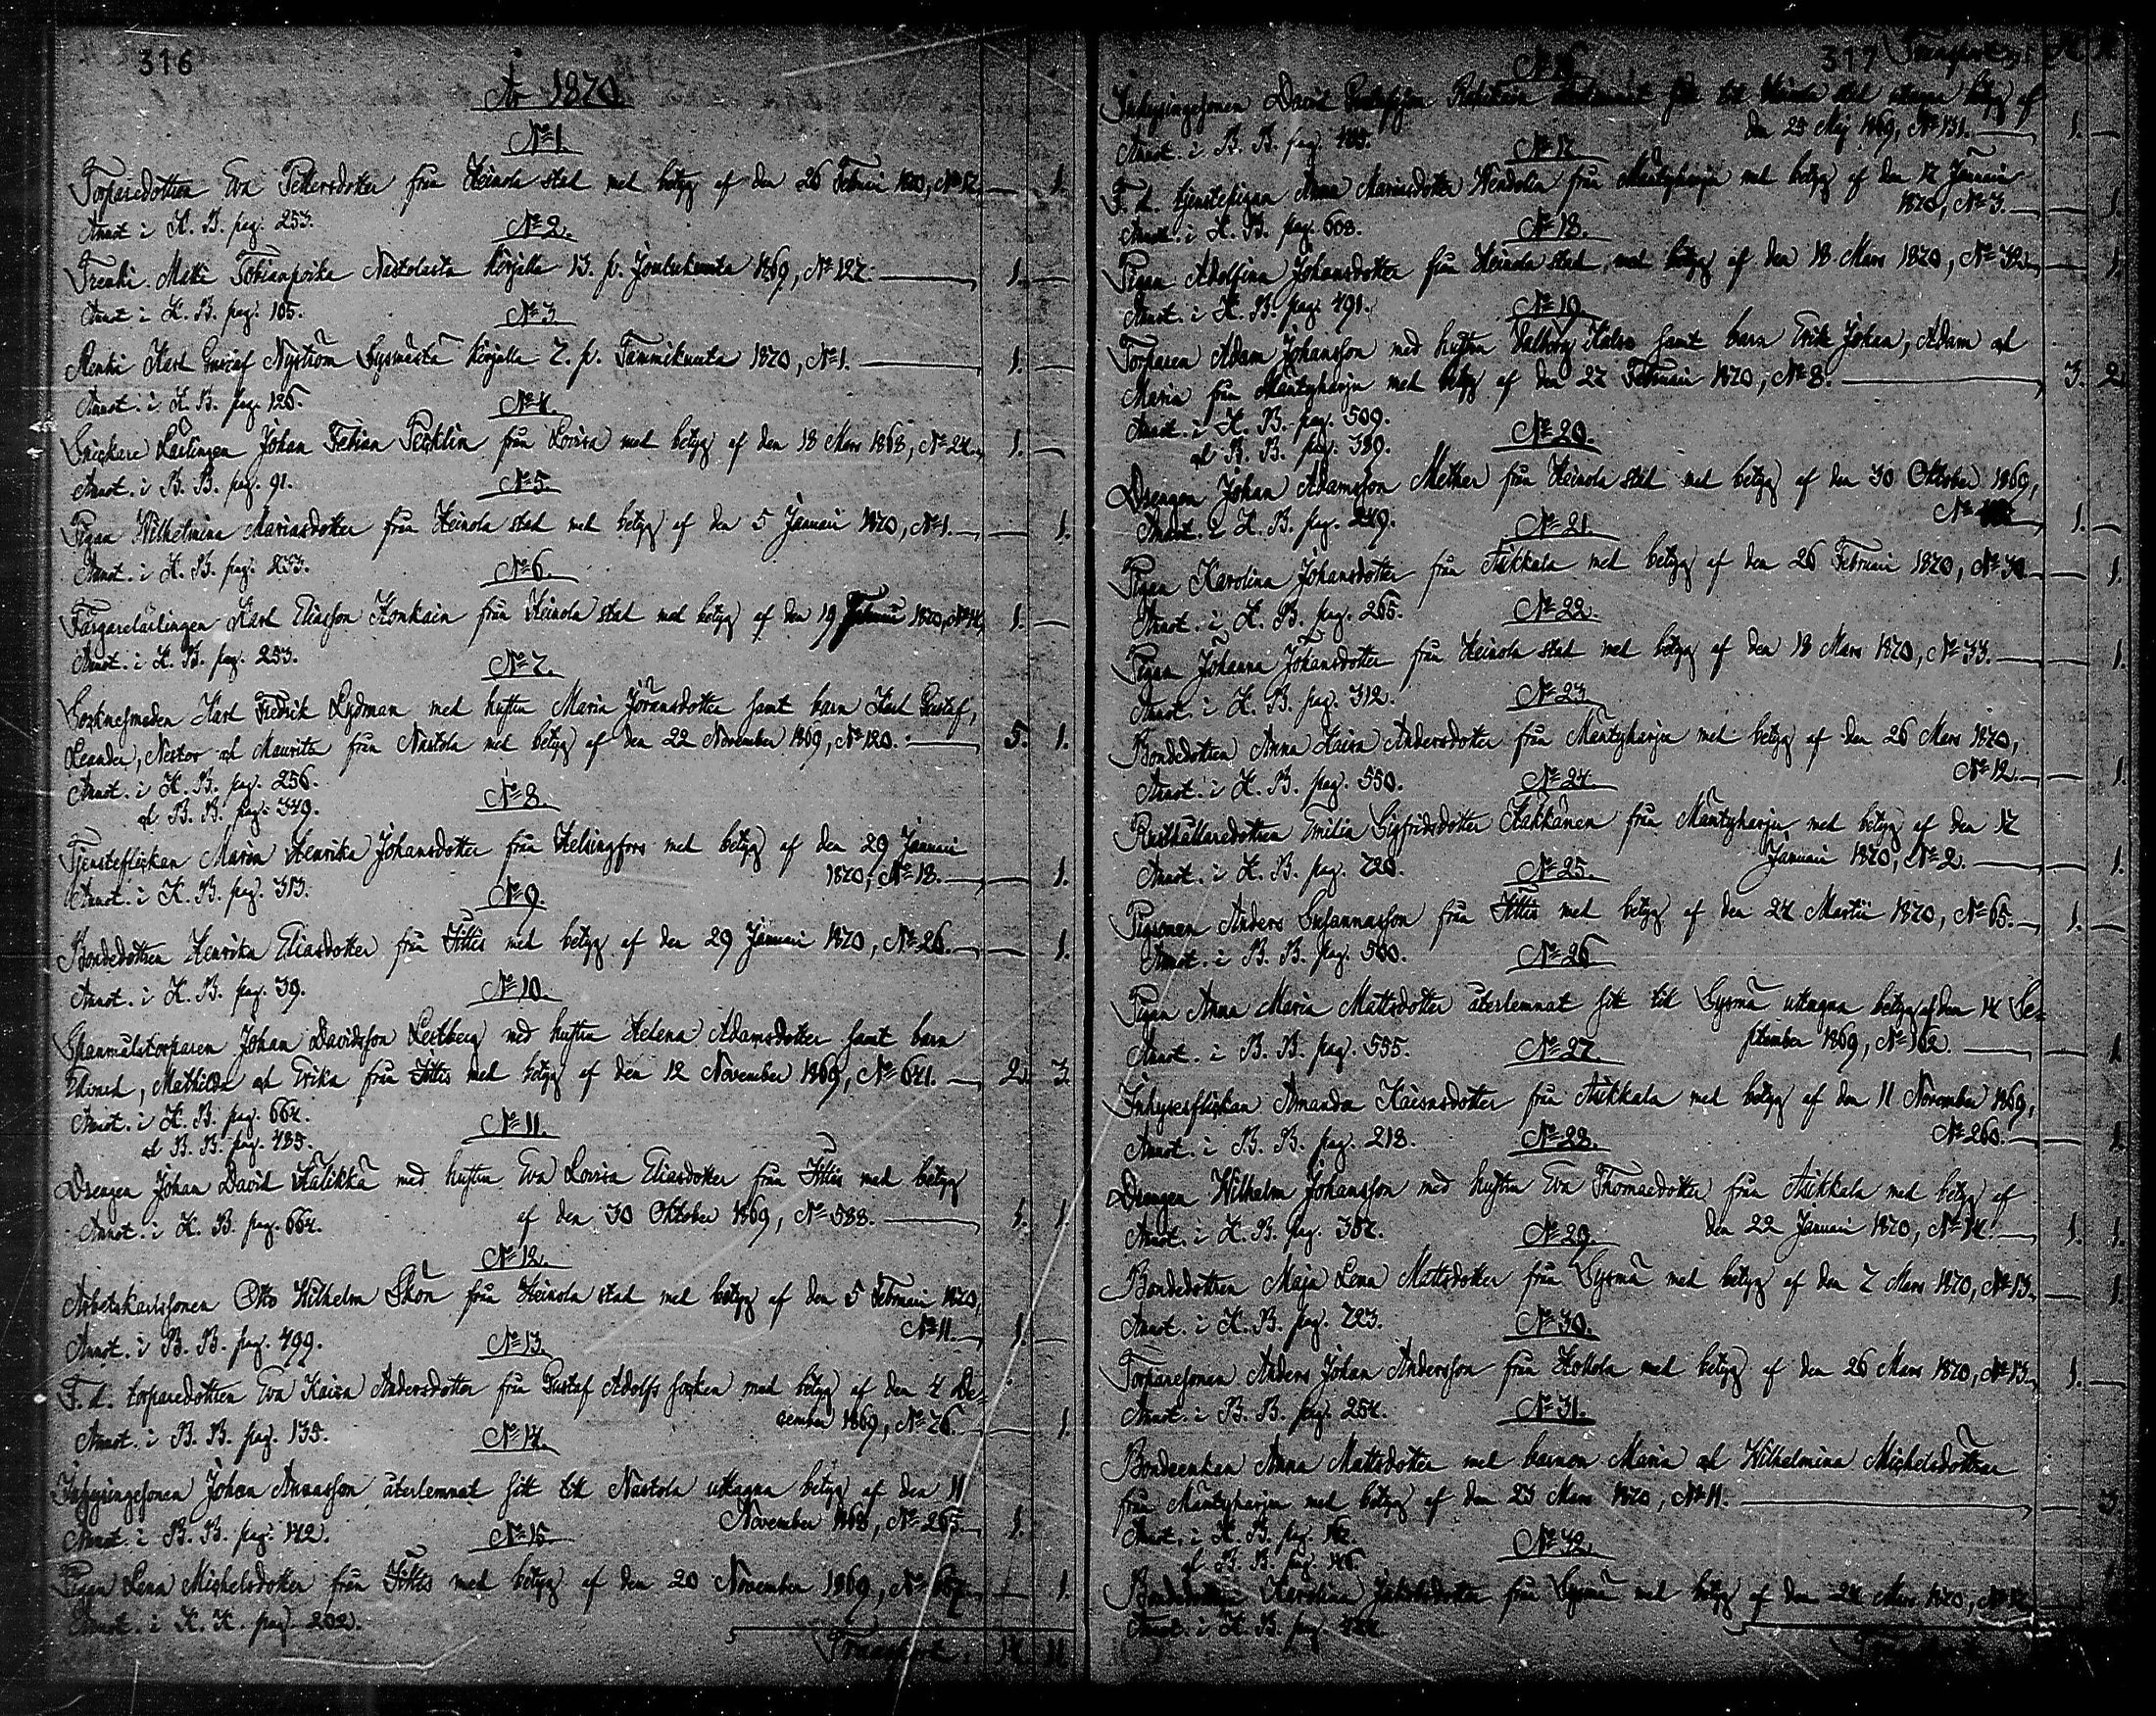 316
År 1870.
No 1.
Torparedottren Eva Pettersdotter från Heinola stad med betyg af den 26 Februari 1870, No 12. — 1.
Annot. i K. B. pag. 253.
No 2.
Trenki Matti Tobianpoika Nastolasta kirjalla 13. p. Joulukuuta 1869, No 127. 1. —
Annot. i K. B. pag. 105.
No 3.
Renki Karl Gustaf Nyström Sysmästä kirjalla 7. p. Tammikuuta 1870, No 1. 1. —
Annot. i K. B. pag. 126.
No 4.
Snickare Lärlingen Johan Fabian Pecklin från Lovisa med betyg af den 18 Mars 1868, No 24. 1. —
Annot. i B. B. pag. 91.
No 5.
Pigan Wilhelmina Mariasdotter från Heinola stad med betyg af den 5 Januari 1870, No 1. — 1.
Annot. i K. B. pag. 233.
No 6.
Färgarelärlingen Karl Eliasson Konkain från Heinola stad med betyg af den 19 Februari 1870, No 14. 1. —
Annot. i K. B. pag. 253.
No 7.
Socknesmeden Karl Fredrik Lydman med hustru Maria Jöransdotter samt barn Karl Gustaf,
Leander, Nestor och Mauritz från Nastola med betyg af den 22 November 1869, No 120. 5. 1.
Annot. i K. B. pag. 256.
och B. B. pag. 349.
No 8.
Tjensteflickan Maria Henrika Johansdotter från Helsingfors med betyg af den 29 Januari
1870, No 18. — 1.
Annot. i K. B. pag. 313.
No 9.
Bondedottren Henrika Eliasdotter från Ittis med betyg af den 29 Januari 1870, No 26. — 1.
Annot. i K. B. pag. 39.
No 10.
Spanmålstorparen Johan Davidsson Leitberg med hustru Helena Adamsdotter samt barn
Edvard, Mathilda och Erika från Ittis med betyg af den 12 November 1869, No 641. 2. 3.
Annot. i K. B. pag. 664.
och B. B. pag. 485.
No 11.
Drengen Johan David Kälikkä med hustru Eva Lovisa Eliasdotter från Ittis med betyg
af den 30 Oktober 1869, No 588. 1. 1.
Annot. i K. B. pag. 664.
No 12.
Arbetskarlssonen Otto Wilhelm Skön från Heinola stad med betyg af den 5 Februari 1870,
No 11. 1. —
Annot. i B. B. pag. 499.
No 13.
F. d. torparedottren Eva Kaisa Andersdotter från Gustaf Adolfs socken med betyg af den 4 De-
cember 1869, No 76. — 1.
Annot. i B. B. pag. 135.
No 14.
Inhysingesonen Johan Annasson återlemnat sitt till Nastola uttagna betyg af den 11
November 1868, No 265. 1.
Annot. i B. B. pag. 142.
No 15.
Pigan Lena Michelsdotter från Ittis med betyg af den 20 November 1869, No — 1.
Annot. i K. K. pag. 202.
Transport. 14 11
317 Transport
No 16
Inhysingesonen David Gustafsson sitt till Heinola stad uttagna betyg af
den 25 Maj 1869, No 131. 1. —
Annot. i B. B. pag. 485.
No 17.
F. d. tjenstepigan Anna Mariasdotter Wendelin från Mäntyharju med betyg af den 17 Januari
1870, No 3. — 1.
Annot. i K. B. pag. 608.
No 18.
Pigan Adolfina Johansdotter från Heinola stad, med betyg af den 18 Mars 1870, No 32. — 1.
Annot. i K. B. pag. 491.
No 19.
Torparen Adam Johansson med hustru Valborg Kalve samt barn Erik Johan, Adam och
Maria från Mäntyharju med betyg af den 27 Februari 1870, No 8. 3. 2.
Annot. i K. B. pag. 509.
och B. B. pag. 389.
No 20.
Drengen Johan Adamsson Mether från Heinola stad med betyg af den 30 Oktober 1869,
No 1. —
Annot. i K. B. pag. 249.
No 21.
Pigan Karolina Johansdotter från Asikkala med betyg af den 26 Februari 1870, No 30. — 1.
Annot. i K. B. pag. 265.
No 22.
Pigan Johanna Johansdotter från Heinola stad med betyg af den 18 Mars 1870, No 33. — 1.
Annot. i K. B. pag. 312.
No 23.
Bondedottren Anna Kaisa Andersdotter från Mäntyharju med betyg af den 26 Mars 1870,
No 12. — 1.
Annot. i K. B. pag. 550.
No 24.
Rusthållaredottren Emilia Sigfridsdotter Kakkanen från Mäntyharju med betyg af den 17
Januari 1870, No 2. — 1.
Annot. i K. B. pag. 720.
No 25.
Pigsonen Anders Susannasson från Ittis med betyg af den 24 Martii 1870, No 65. 1. —
Annot. i B. B. pag. 500.
No 26
Pigan Anna Maria Mattsdotter återlemnat sitt till Sysmä uttagna betyg af den 14 Se-
ptember 1869, No 162. — 1.
Annot. i B. B. pag. 555.
No 27.
Inhysesflickan Amanda Kaisasdotter från Asikkala med betyg af den 11 November 1869,
No 260. — 1.
Annot. i B. B. pag. 218.
No 28.
Drengen Wilhelm Johansson med hustru Eva Thomasdotter från Asikkala med betyg af
den 22 Januari 1870, No 14. 1. 1.
Annot. i K. B. pag. 304.
No 29.
Bondedottren Maja Lena Mattsdotter från Sysmä med betyg af den 7 Mars 1870, No 13. — 1.
Annot. i K. B. pag. 723.
No 30.
Torparesonen Anders Johan Andersson från Hollola med betyg af den 26 Mars 1870, No 13. 1. —
Annot. i B. B. pag. 254.
No 31.
Bondeenkan Anna Mattsdotter med barnen Maria och Wilhelmina Michelsdöttrar
från Mäntyharju med betyg af den 23 Mars 1870, No 11. — 3
Annot. i K. B. pag. 162.
och B. B. pag. 146.
No 32.
Bondedottren Karolina Jakobsdotter från Sysmä med betyg af den 24 Mars 1870,
Annot. i K. B. pag.